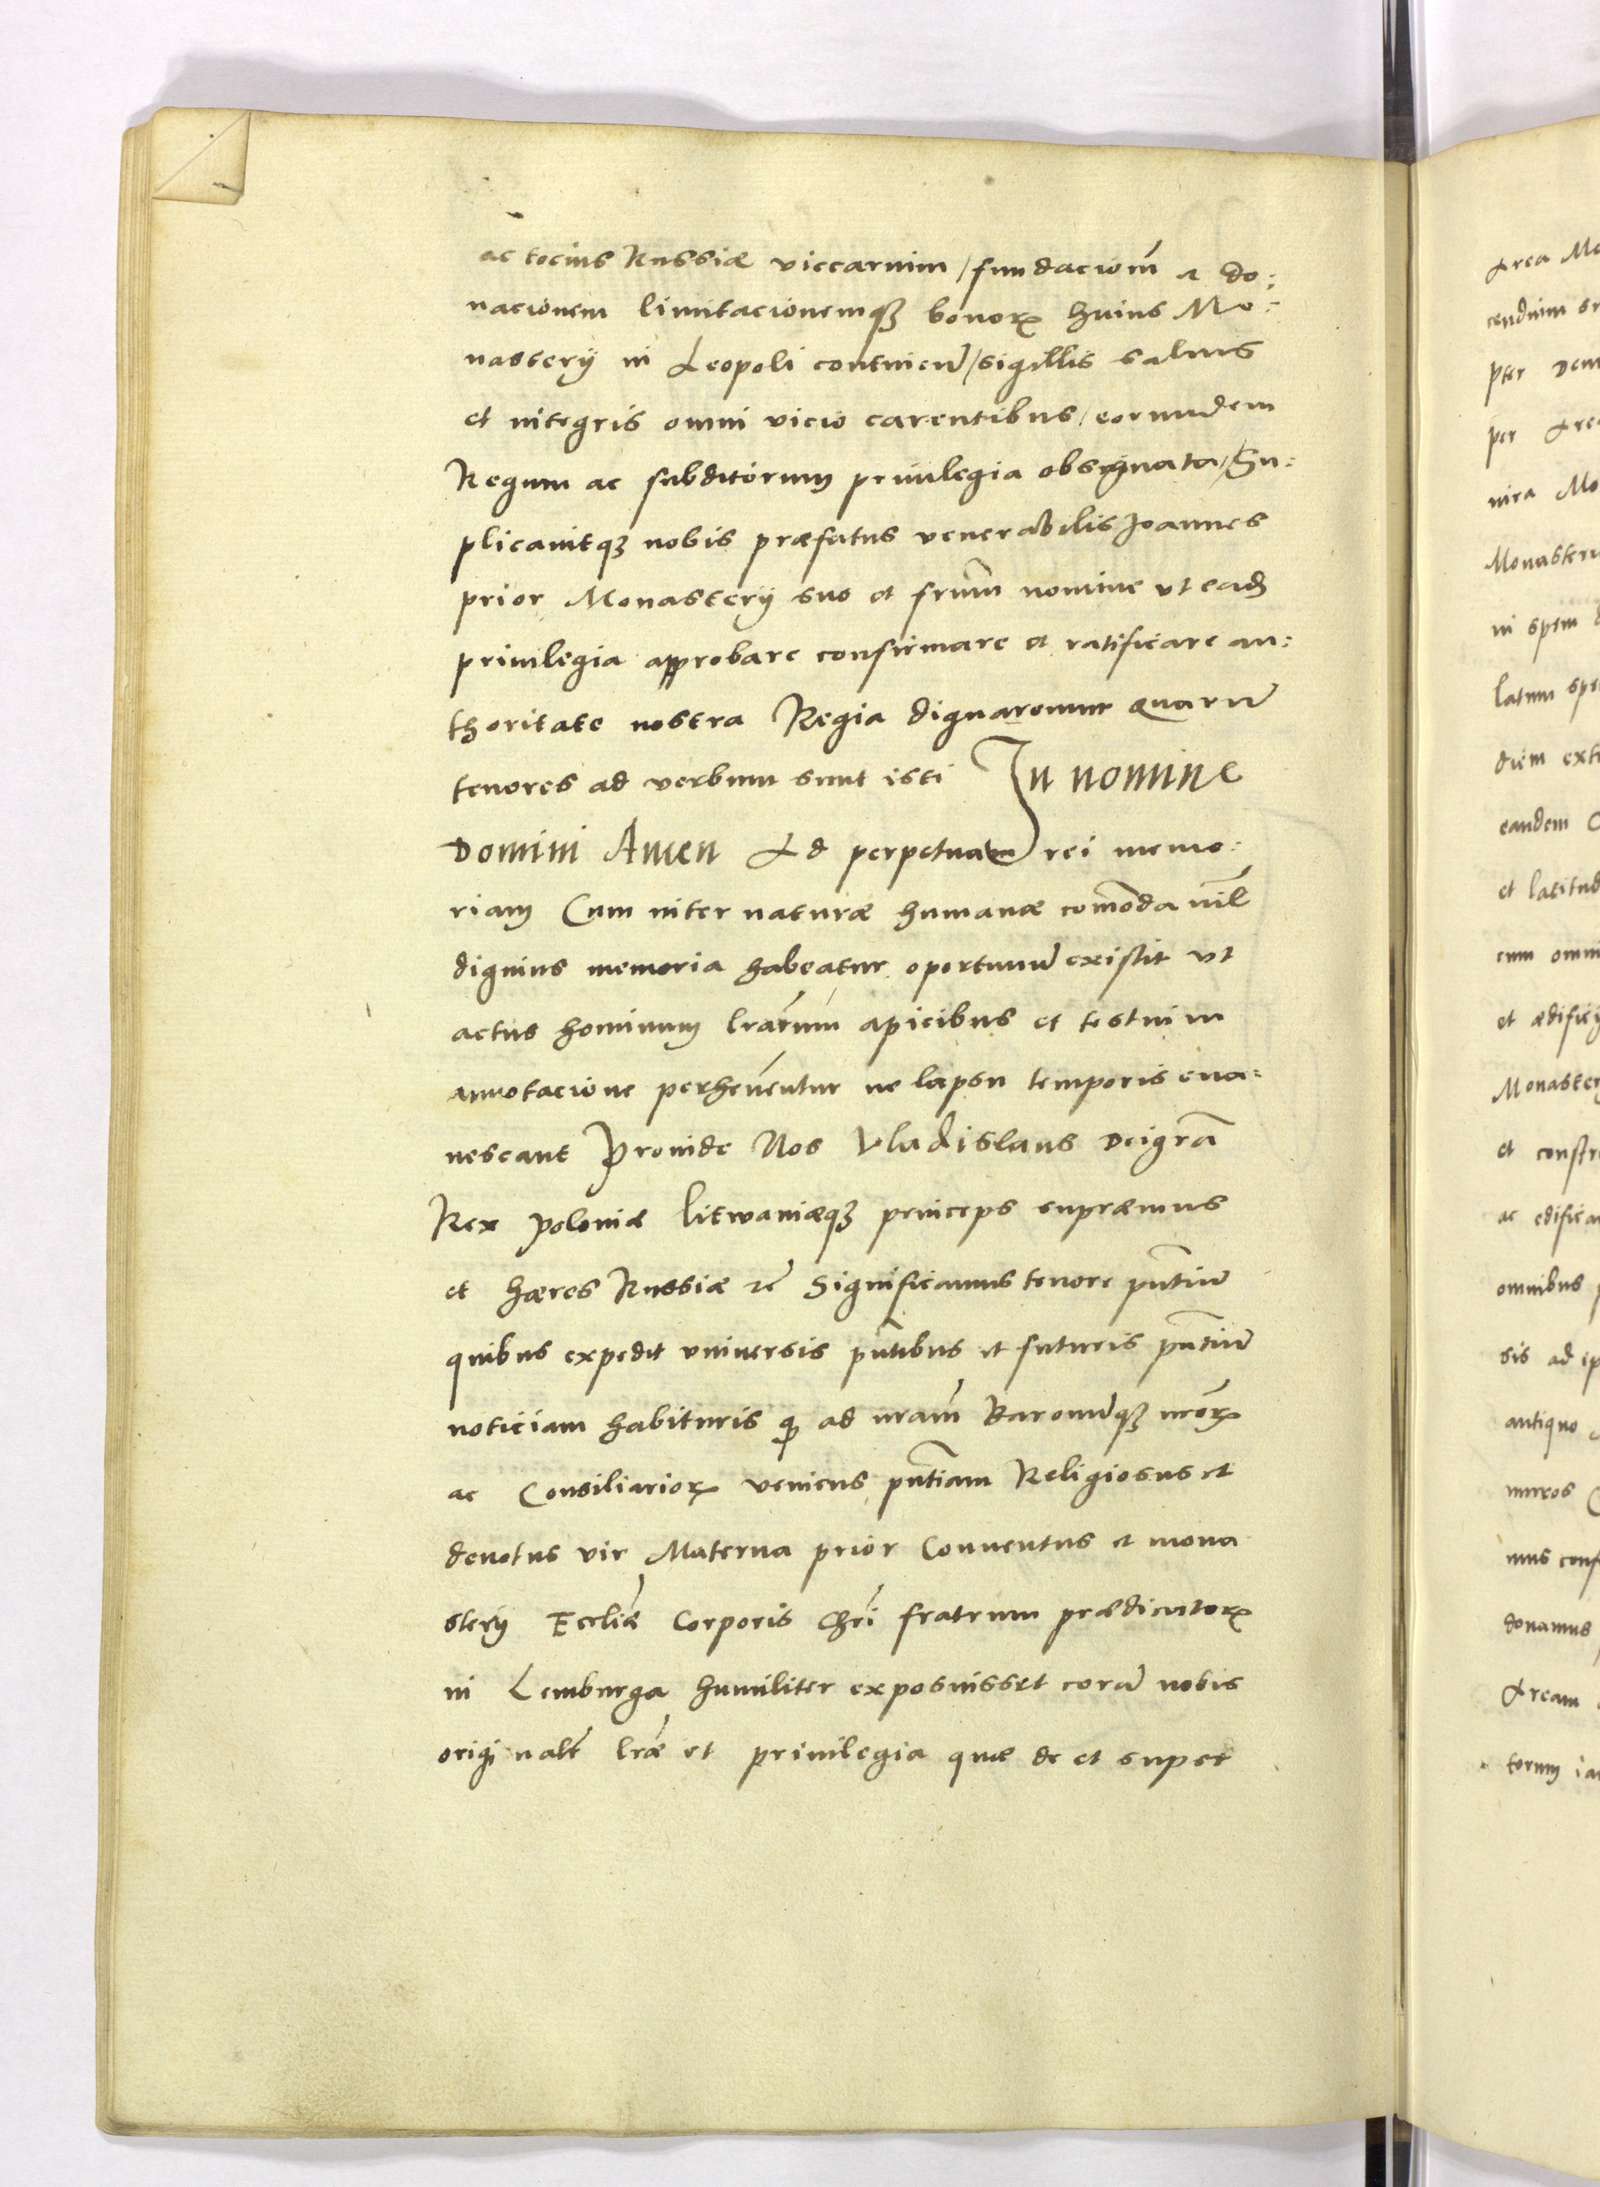 ac tocius Russiæ viccarium / fundacionē et do:
nacionem limitacionemqꝫ bonoꝝ huius Mo:
nasterij in Leopoli contineñ / sigillis saluis
et integris omni vicio carentibus / eorundem
Regum ac subditorum priuilegia obsignata / Su:
plicauitqꝫ nobis præfatus venerabilis Joannes
prior Monasterij suo et frūm nomine vt eadē
priuilegia approbare confirmare et ratificare au:
thoritate nostra Regia dignaremur Quarū
tenores ad verbum sunt isti In nomine
Domini Amen Ad perpetuam rei memo:
riam Cum inter naturæ humanæ com̄oda nil̄
dignius memoria habeatur oportunū existit vt
actus hominum lrārum apicibus et testium
annotacione perhen̄entur ne lapsu temporis eua:
nescant Prouide Nos Vladislaus Dei grā
Rex Poloniæ litwaniæqꝫ princeps supræmus
et hæres Russiæ ꝛc̄ Significamus tenore pn̄tiū
quibus expedit vniuersis pn̄tibus et futuris pn̄tiū
noticiam habituris ꝙ ad nrām Baronūqꝫ nrōꝝ
ac Consiliarioꝝ veniens pn̄tiam Religiosus et
deuotus vir Materna prior Conuentus et mona
sterij Eccliǣ Corporis Chrī fratrum prædicatoꝝ
in Lemburga humiliter exposuisset corā nobis
originalēs lrǣ et priuilegia quæ de et super
Area
per
Monasteri
in spem
latum
eandem
cum omni
et ædificij
omnibus
sis ad
antiquo
muros
donamus
Aream